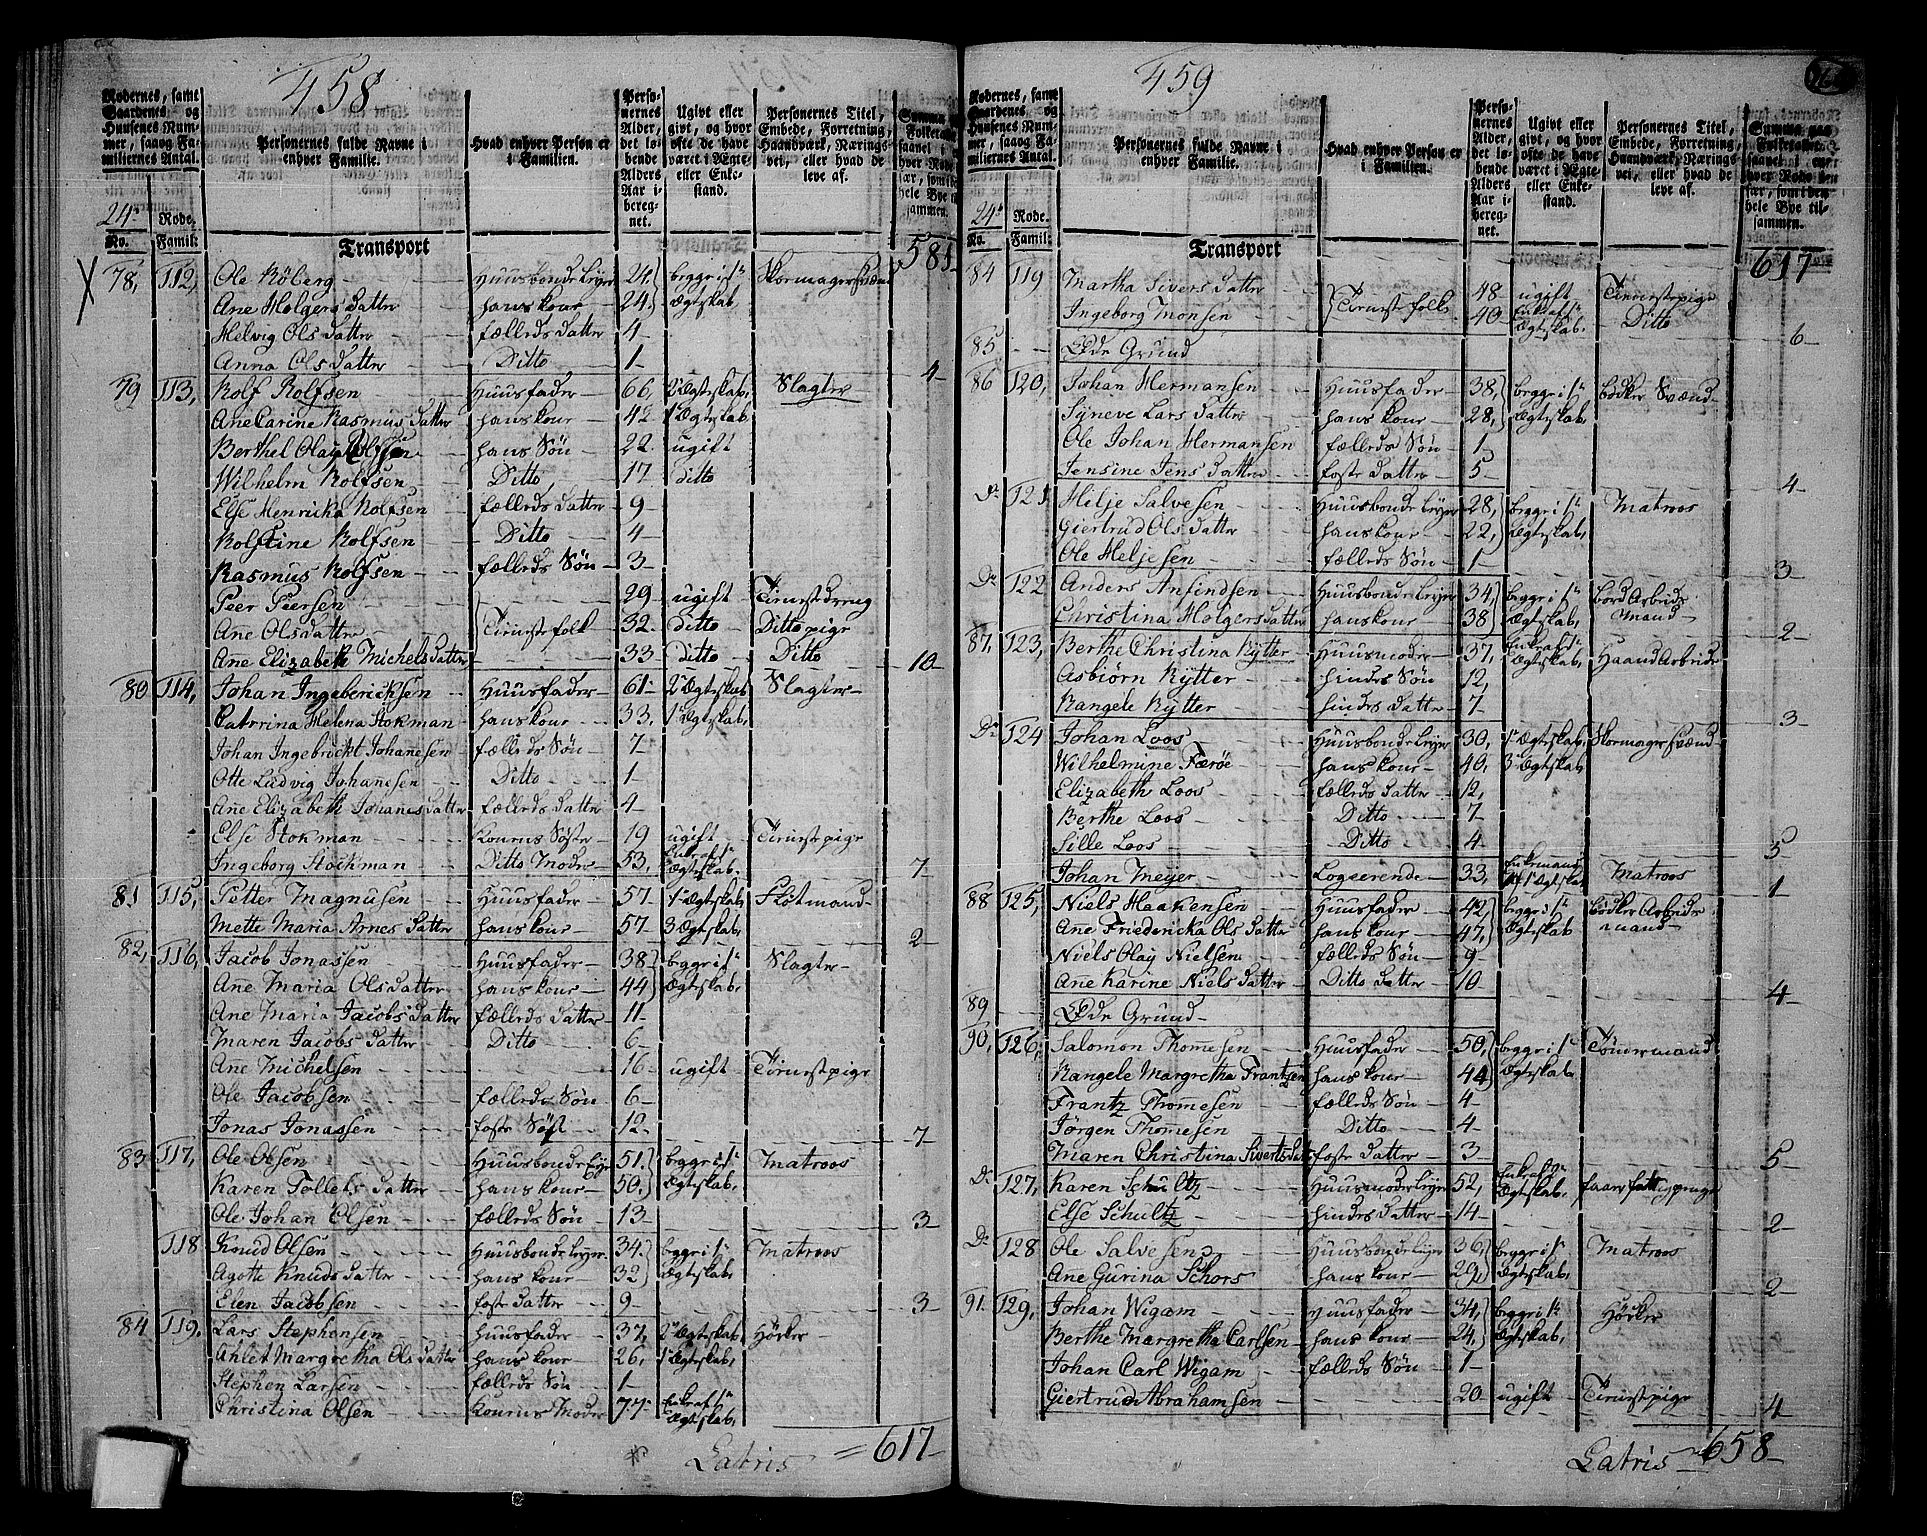 458
Rodernes, samt Gaardenes, og Huusenes Nummer, saaog Familiernes Antal.
Personernes fulde Navne i enhver Familie.
Hvad enhver Person er i Familien.
Personernes Alder, det løbende Alders Aar iberegnet.
Ugivt eller givt, og hvor ofte de have været i Ægte- eller Enkestand.
Personernes Titel, Embede, Forretning, Haandværk, Næringsvei, eller hvad de leve af.
24de Rode.
No. Famil:
Transport 581
78, 112, Ole Röberg Huusbonde Leyer 24, begge i 1te Skomager Svend
Ane Holgers datter hans kone 24, Ægteskab,
Helvig Ols datter fælleds datter 4
Anna Ols datter Ditto 1 4
79 113, Rolf Rolfsen Huusfader 66, 2 Ægteskab, Slagter
Ane Carine Rasmus datter hans kone 42 1te Ægteskab,
Berthel Olay Rolfsen hans Søn 22 ugift
Wilhelm Rolfsen Ditto 17 ditto
Else Henricka Rolfsen fælleds datter 9
Rolfine Rolfsen Ditto 4
Rasmus Rolfsen fælleds Søn 3
Peer Peersen Tienestefolk 29 ugift Tienestdreng
Ane Olsdatter 32 ditto Ditto pige
Ane Elizabeth Michels datter 33 ditto Ditto 10
80 114, Johan Ingebericksen Huusfader 61 2 Ægteskab Slagter
Catrina Helena Stokman hans kone 33, 1te Ægteskab,
Johan Ingebrickt Johanesen fælleds Søn 7
Otte Ludvig Johanesen Ditto 1
Ane Elizabeth Johanes datter fælleds datter 4
Else Stokman Konens Søster 19 ugift Tienestpige
Ingeborg Stockman Ditto Moder 53, Enke af 1te Ægteskab, 7
81 115, Petter Magnusen Huusfader 57 1te Ægteskab Flotmand
Mette Maria Arnes datter hans kone 57 3 Ægteskab, 2
82, 116, Jacob Jonassen Huusfader 38 begge i 1te Slagter
Ane Maria Olsdatter hans kone 44 Ægteskab,
Ane Maria Jacobs datter fælleds datter 11
Maren Jacobs datter Ditto 6
Ane Michelsen 16 ugift Tienestpige
Ole Jacobsen fælleds Søn 6
Jonas Jonassen foster Søn 12 7
83 117, Ole Olsen Huusbonde Leyer 51, begge i 1te Matroos
Karen Tollefs datter hans kone 50, Ægteskab,
Ole Johan Olsen fælleds Søn 13 3
118 Knud Olsen Huusbonde Leyer 34, begge i 1te Matroos
Agotte Knuds datter hans kone 32 Ægteskab,
Elen Jacobsen foster datter 9 3
84 119, Lars Stephensen Huusfader 37, 2 Ægteskab Hörker
Ahlet Margretha Ols datter hans kone 26, 1te Ægteskab,
Stephen Larsen fælleds Søn 1
Christina Olsen Konens Moder 77 Enke af 1te Ægteskab,
Latris = 617
459
Rodernes, samt Gaardenes, og Huusenes Nummer, saaog Familiernes Antal.
Personernes fulde Navne i enhver Familie.
Hvad enhver Person er i Familien.
Personernes Alder, det løbende Alders Aar iberegnet.
Ugivt eller givt, og hvor ofte de have været i Ægte- eller Enkestand.
Personernes Titel, Embede, Forretning, Haandværk, Næringsvei, eller hvad de leve af.
Summa paa Folketallet saavel i enver hver Rode den sær, som i den hele Bye tilsammen.
24de Rode.
No. Famil:
Transport 617
84 119 Martha Sivers datter Tienestefolk 48 ugift Tienestepige
Ingeborg Monsen 40 Enke af 1te Ægteskab, Ditto 6
85 Öde Grund
86 120, Johan Hermansen Huusfader 38, begge i 1te Bödker Svænd
Syneve Lars datter hans kone 28, Ægteskab,
Ole Johan Hermansen fælleds Søn 1
Jensine Jens datter foster datter 5 4
Do 121 Hilje Salvesen Huusbonde Leyer 28, begge i 1te Matroos
Giertrud Ols datter hans kone 22, Ægteskab,
Ole Heljesen fælleds Søn 1 3
Do 122 Anders Anfindsen Huusbonde Leyer 34, begge i 1te bord Arbeids
Christina Holgers datter hans kone 38 Ægteskab, mand 2
87, 123, Berthe Christina Rytter Huusmoder 37, Enke af 1te Ægteskab, Haand Arbeide
Asbiörn Rytter hindes Søn 12,
Rangele Rytter hindes datter 7 3
Do 124 Johan Loos Huusbonde Leyer 30, 1te Ægteskab, Skomager Svænd
Wilhelmine Færöe hans kone 40, 3 Ægteskab
Elizabeth Loos fælleds datter 12,
Berthe Loos Ditto 7
Sille Loos Ditto 4 5
Johan Meyer Logeerende 33, Enkemand af 1te Ægteskab Matroos 1
88 125, Niels Haakensen Huusfader 42, begge i 1te bödker Arbeids
Ane Friedericka Ols datter hans kone 47, Ægteskab mand
Niels Olay Nielsen fælleds Søn 9
Ane Karine Niels datter Ditto datter 10 4
89 Öde Grund
90, 126, Salomon Thomesen Huusfader 50, begge i 1te Tönnermand
Rangele Margretha Frantzen hans kone 44 Ægteskab,
Frantz Thomesen fælleds Søn 4
Jörgen Thomesen Ditto 4
Maren Christina Siverts dat foster datter 3 5
Do 127, Karen Schultz Huusmoder Leyer 52, Enke af 1te Ægteskab, faaer fattig penge
Else Schultz hindes datter 14 2
Do 128 Ole Salvesen Huusbonde Leyer 36, begge i 1te Matroos
Ane Gurina Schors hans kone 29, Ægteskab, 2
91. 129, Johan Wigam Huusfader 34, begge i 1te Hörker
Berthe Margretha Carlsen hans kone 24, Ægteskab,
Johan Carl Wigam fælleds Søn 1
Giertrud Abrahamsen 20 ugift Tienestpige 4
Latris 658